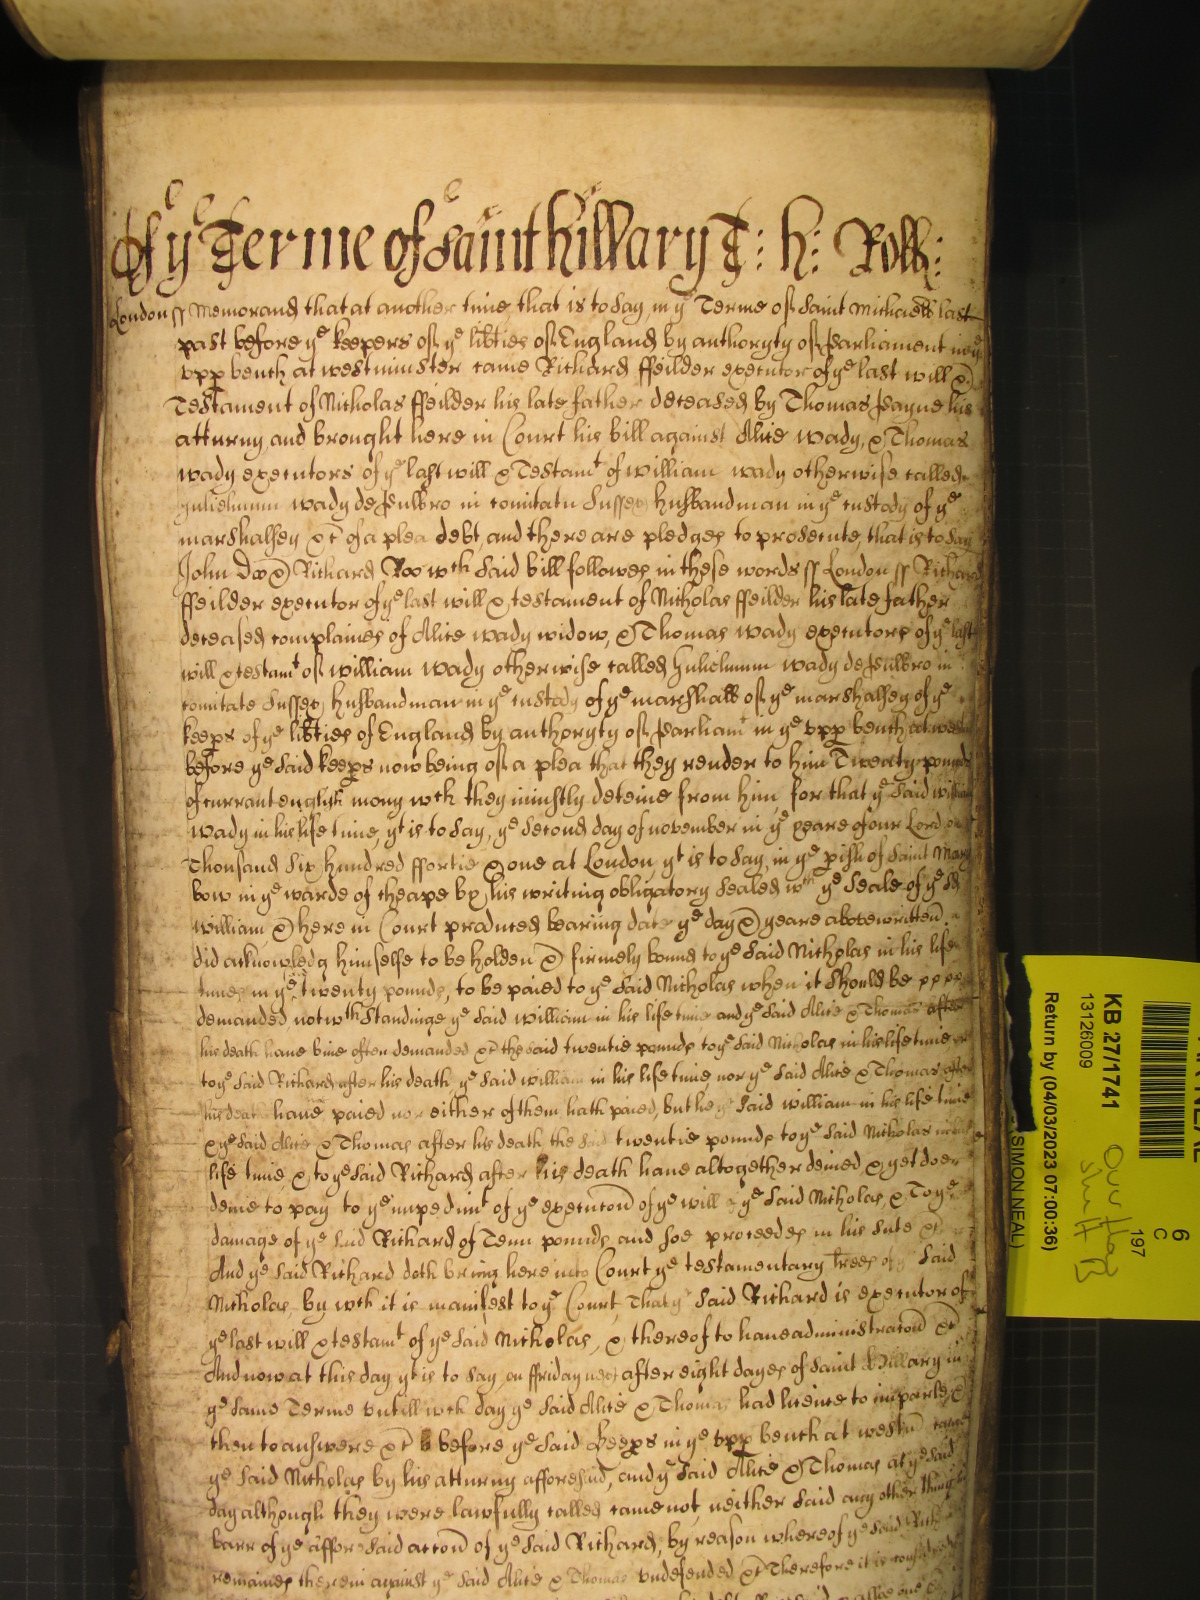 Of ye Terme of Saint hillary T: h: Roll:
London ss Memorand that at another time, that is to say, in ye Terme of Saint Michaell last
past before ye keepers of ye libties of England by authoryty of Parliament in ye
vpp bench at westminster came Richard ffeilder executor of ye last will &
Testament of Nicholas ffeilder his late father deceased by Thomas Payne his
atturny and brought here in Court his bill against Alice wady, & Thomas
wady executors of ye last will & Testamt of william wady otherwise called
Gulielmum wady de Pulbro in comitatu Sussex husbandman in ye custody of ye
marshalsey &c of a plea debt, and there are pledges to prosecute, that is to say
John Doo & Richard Roo wch said bill followes in these words ss London ss Richard
ffeilder executor of ye last will & testament of Nicholas ffeilder his late father
deceased complaines of Alice wady widow, & Thomas wady executors of ye last
will & testamt of william wady otherwise called Gulielmum wady de Pulbro in
comitate Sussex husbandman in ye custody of ye marshall of ye marshalsey of ye
keeps of ye libties of England by authoryty of Parliamt in ye vpp bench at west
before ye said keeps now being of a plea that they render to him Twenty pounds
of currant english mony wch they iniustly deteine from him, for that ye said william
wady in his life time, yt is to say, ye second day of november in ye yeare of our Lord one
Thousand Six hundred ffortie & one at London, yt is to say, in ye pish of Saint Mary
bow in ye warde of cheape by his writing obligatory sealed wth ye seale of ye sd
william, & here in Court produced bearing date ye day & yeare abovewritten
did acknowledg himselfe to be holden & firmely bound to ye said Nicholas in his life
time, in ye twenty pounds, to be paied to ye said Nicholas when it should be
demanded notwthstandinge ye said william in his life time and ye said Alice & Thomas after
his death haue bine often demanded &c the said twentie pounds to ye said Nicholas in his life time or
to ye said Richard after his death ye said william in his life time, nor ye said Alice & Thomas after
his death haue paied nor either of them hath paied, but he ye said william in his life time
& ye said Alice & Thomas after his death the said twentie pounds to ye said Nicholas in his
life time, & to ye said Richard after his death haue altogether denied & yet doe
denie to pay to ye impedimt of ye execucon of ye will ye said Nicholas, & To ye
damage of ye said Richard of Tenn pounds and soe proceedes in his sute &c
And ye said Richard doth bring here into Court ye testamentary lrees of ye Said
Nicholas, by wch it is manifest to ye Court, That ye Said Richard is executor of
ye last will & testamt of ye said Nicholas, & thereof to haue administracon &c
And now at this day yt is to say, on ffriday next after eight dayes of Saint Hillary in
ye same Terme vntill wch day ye said Alice & Thomas had licence to imparle &
then to answere &c before ye said Keeps in ye vpp bench at westm came
ye said Nicholas by his atturny afforesaid, and ye said Alice & Thomas at ye said
day although they were lawfully called came not, neither said any other thing
barr of ye afforesaid accon of ye said Richard, by reason whereof ye said Rich
remaines therein against ye said Alice & Thomas vndefended &c Therefore it is considered
KB 27/1741
13126009
Return by (04/03/2023 07:00:36)
(SIMON NEAL)
6
C
197